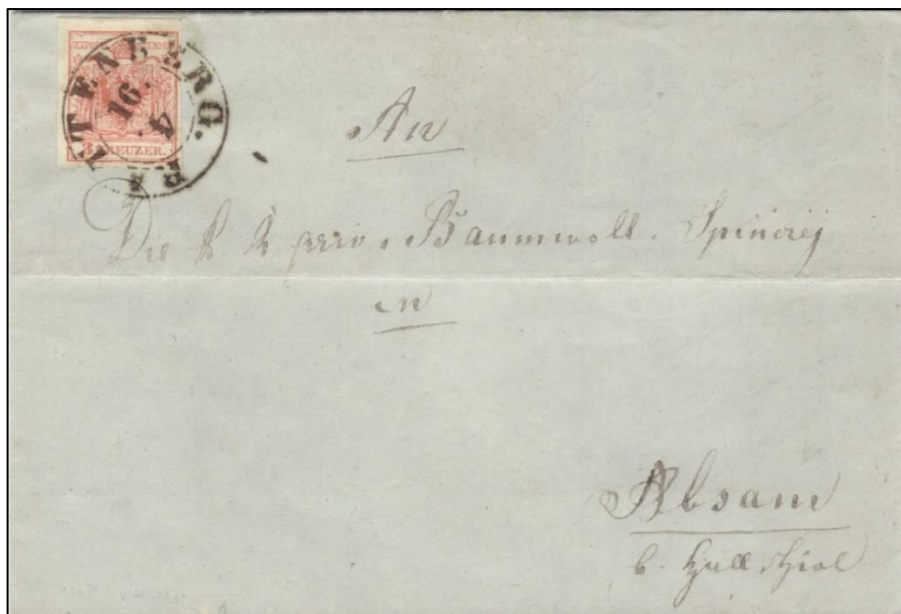 RATTENBERG.
16.
4.
3 KREUZER.
An
Die k k priv. Baumwoll. Spinerej
in
Absam
b. Hall, Tirol